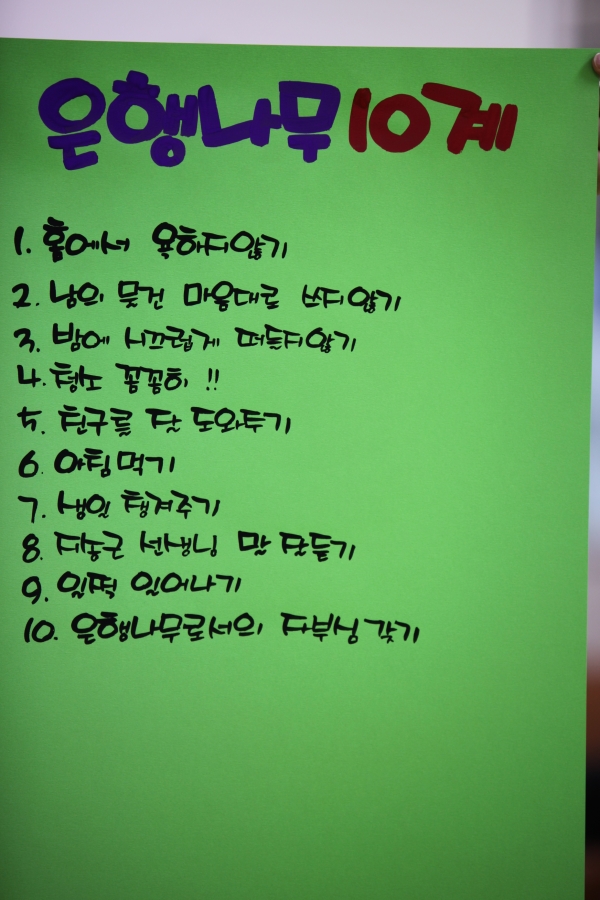 은행나무10계
1. 홈에서 욕하지않기
2. 남의 물건 마음대로 쓰지않기
3. 밤에 시끄럽게 떠들지않기
4. 청소 꼼꼼히 !!
5. 친구를 잘 도와주기
6. 아침먹기
7. 생일 챙겨주기
8. 지송근 선생님 말 잘듣기
9. 일찍 일어나기
10. 은행나무로서의 자부심 갖기